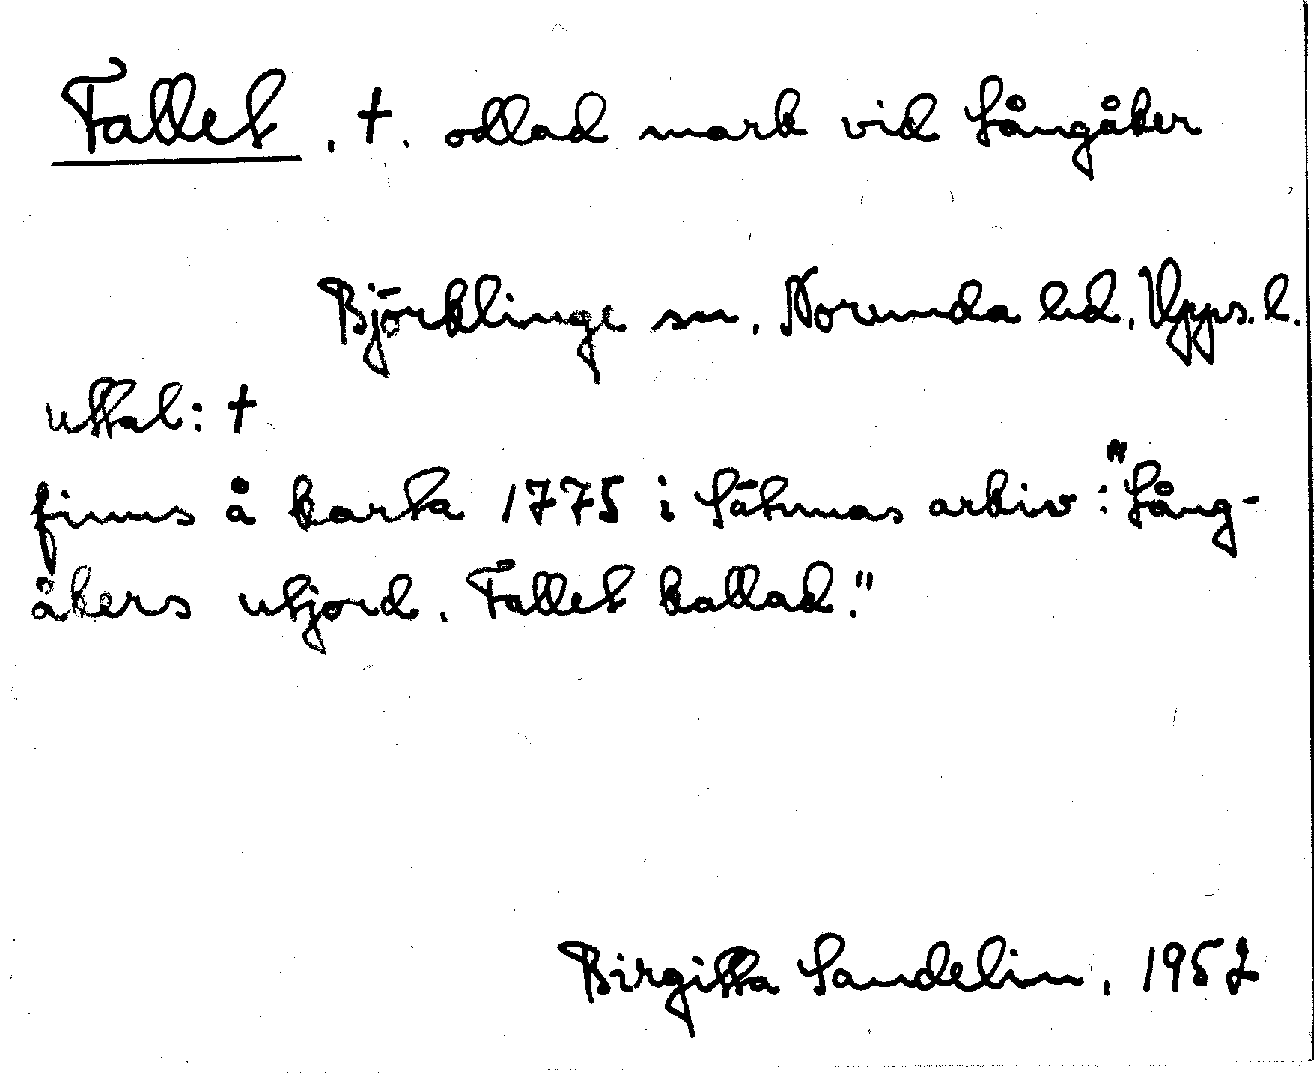 Fallet, †. odlad mark vid Långåker
Björklinge sn. Norunda hd. Upps. l.
uttal: †
finns å karta 1775 i Sätunas arkiv: "Lång-
åkers utjord. Fallet kallad."
Birgitta Sandelin, 1952